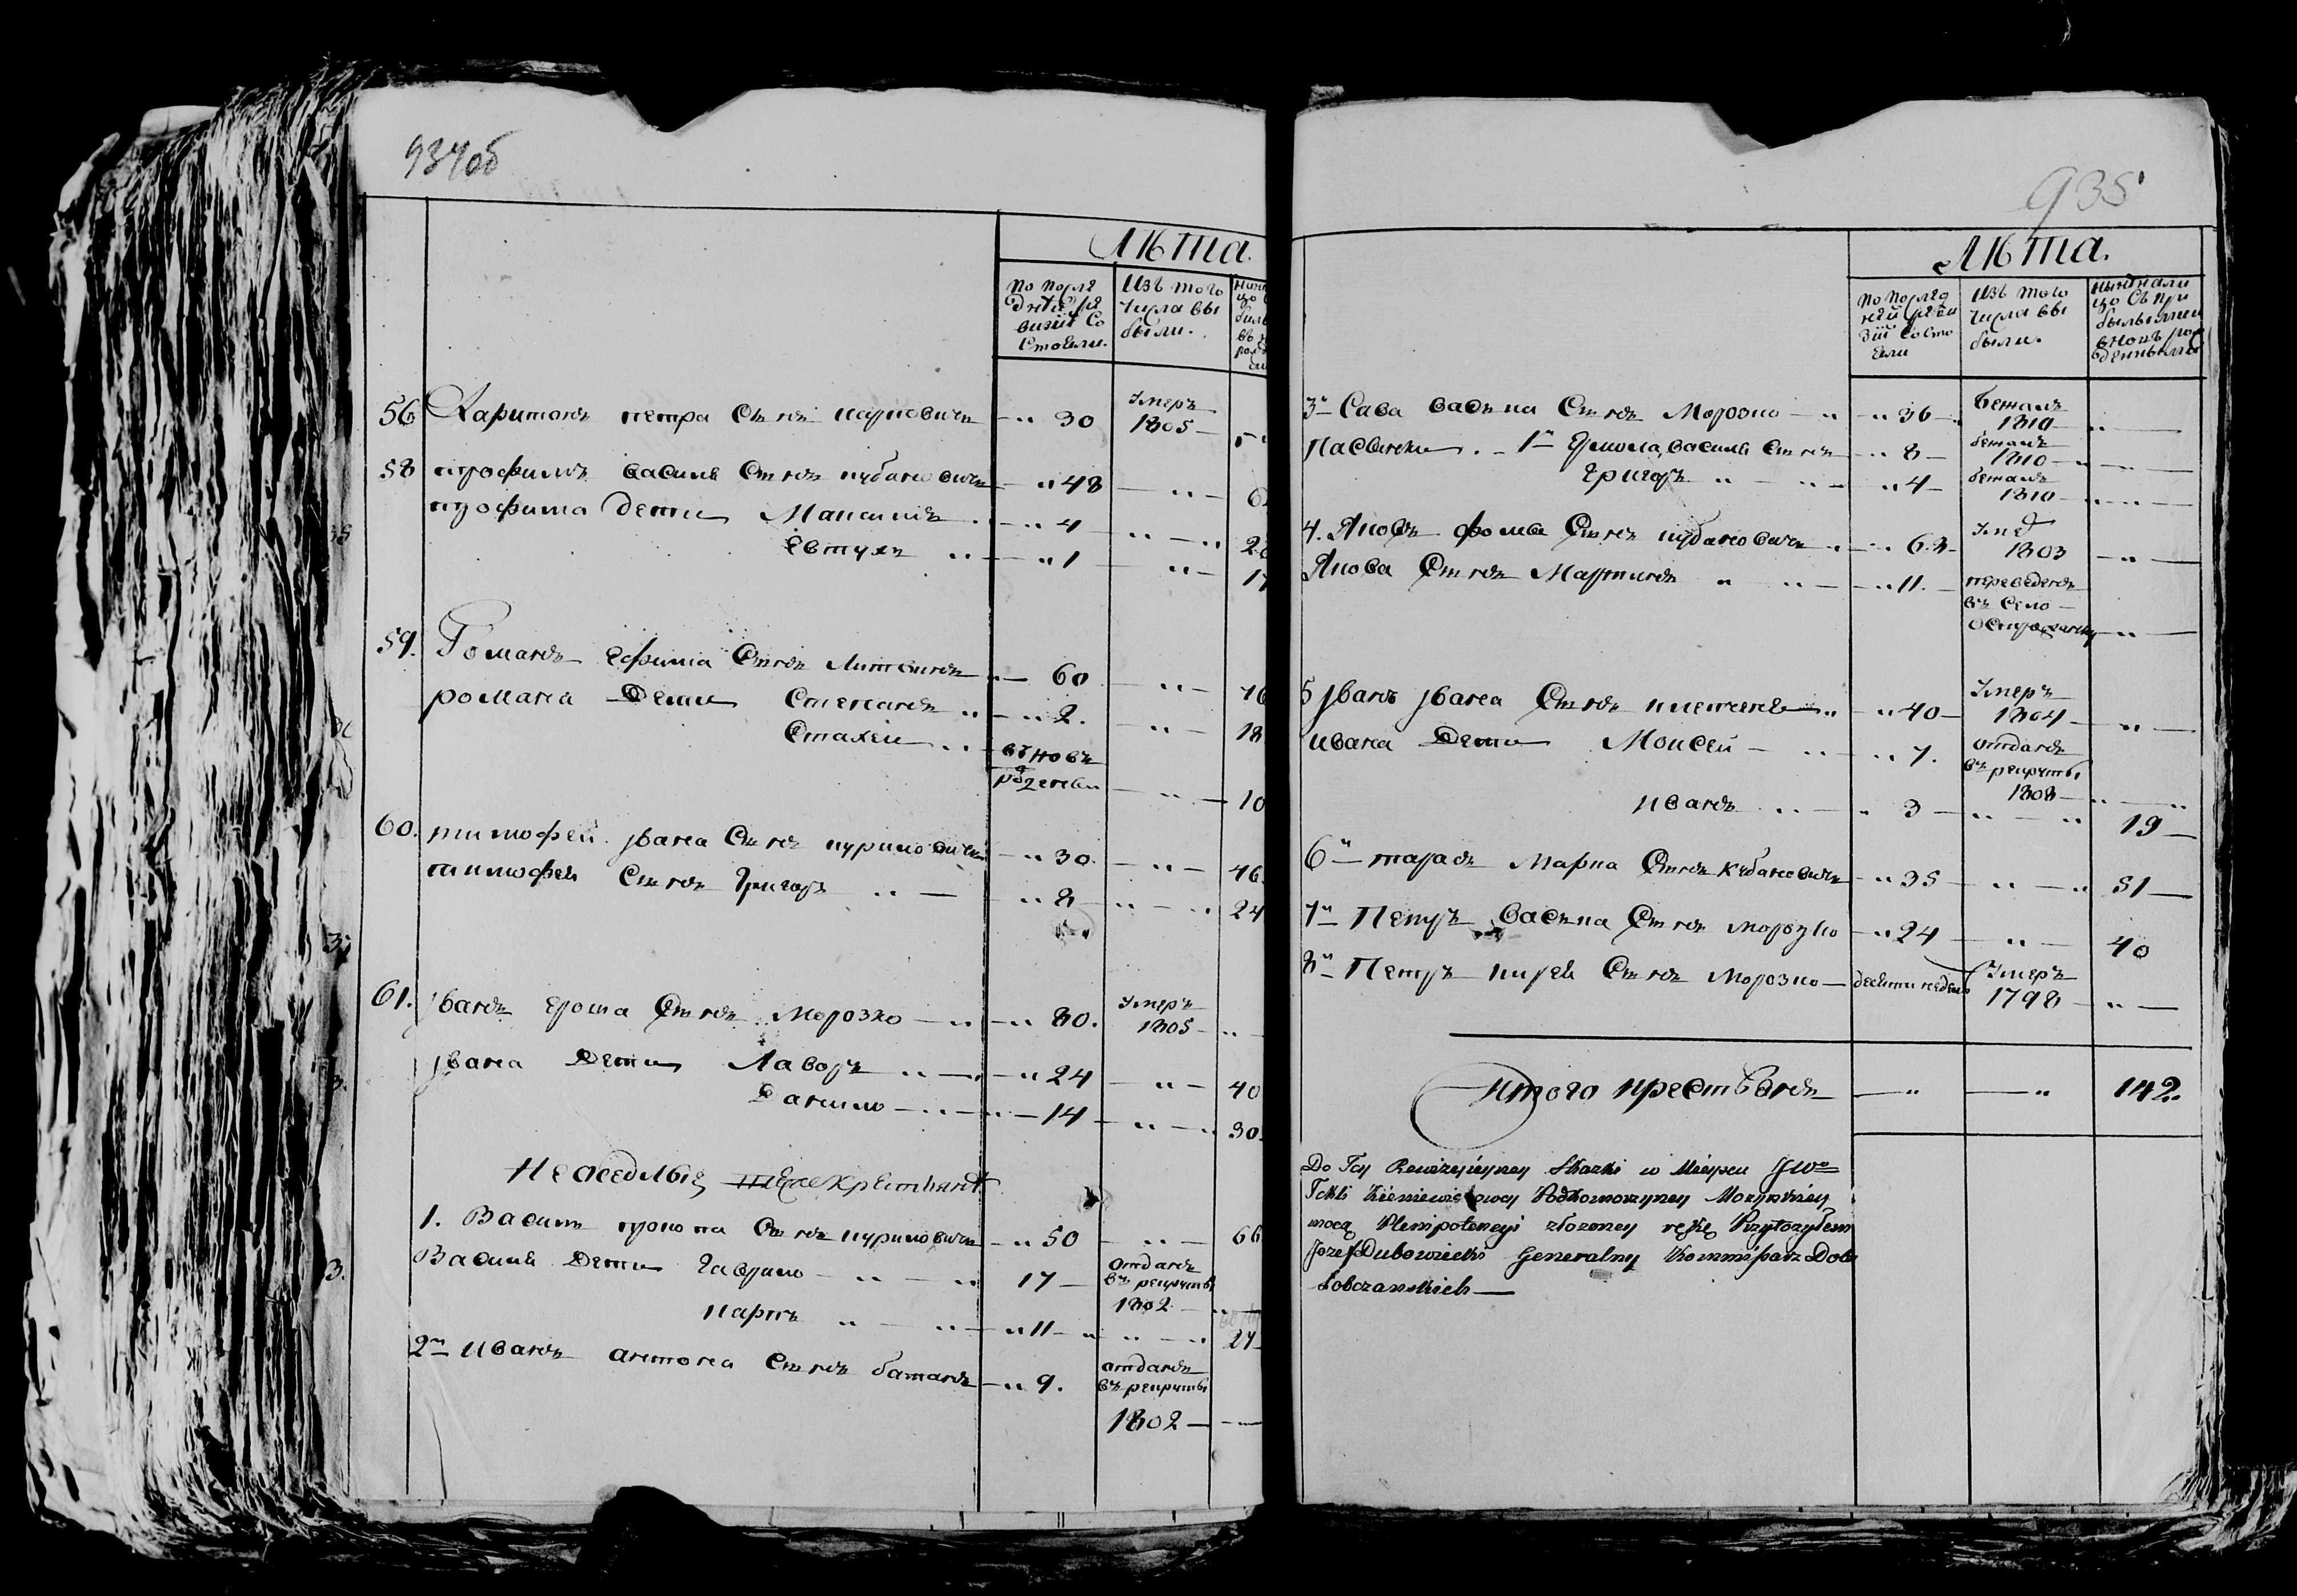 934об
Лѣта.
По поря
дней ре
визіи Со
стояли.
Изъ того
числа вы
были.
56 Харитонъ петра Сынъ карповичъ 30 Умеръ 1805
58 трофимъ василя Сынъ кубановичъ 48
трофима дети Максимъ 4
Евтухъ 1
59. Романъ Ефима Сынъ Литвинъ 60
романа Дети Степанъ 2. 18
Стахей вновь рожденъ 10
60. тимофей ивана Сынъ куриловичъ 30. 46.
тимофея Сынъ Григоръ 8 24
61. иванъ ероша Сынъ Морозко 80. Умеръ 1805
ивана Дети Лаворъ 24 40
Данило 14 30.
Неоседлые крестьяне
1. Василь прокопа Сынъ куриловичъ 50 66
Василя Дети Гаврило 17 отданъ въ рекруты 1802
карпъ 11 27
2й иванъ антона Сынъ батанъ 9. отданъ въ рекруты 1802
935
Лѣта.
По поряд
ней реви
зіи Состо
яли
Изъ того
числа вы
были.
Ныне нали
цо съ при
былыми и
вновь рож
денными
3й Сава васька Сынъ Морозко 36 Бежалъ 1810
Пасынки 1й Ярмола, василя Сынъ 8 бежалъ 1810
Григоръ 4 бежалъ 1810
4. Яковъ фомы Сынъ кубановичъ 63 Умер 1803
Якова Сынъ Мартинъ 11. переведенъ
въ Село
5 иванъ ивана Сынъ 40 Умеръ 1804
ивана Дети Моисей 7. отданъ въ рекруты 1808
иванъ 3 19
6й тарасъ Марка Сынъ Кубановичъ 35 51
7й Петръ Васька Сынъ морозко 24 40
8й Петръ кирея Сынъ Морозко десяти недель Умеръ 1798
итого крестьянъ 142.
Do Tey Rewizyiney Skazki w Mieyscu JWney
Tekli Kieniewiczowey Podkomorzyney Mozyrskiey
mocą Plenipotencyi złożoney rękę Przyłożyłem
Jozef Dubowiecki Generalny Kommissarz Dobr
Łobczanskich